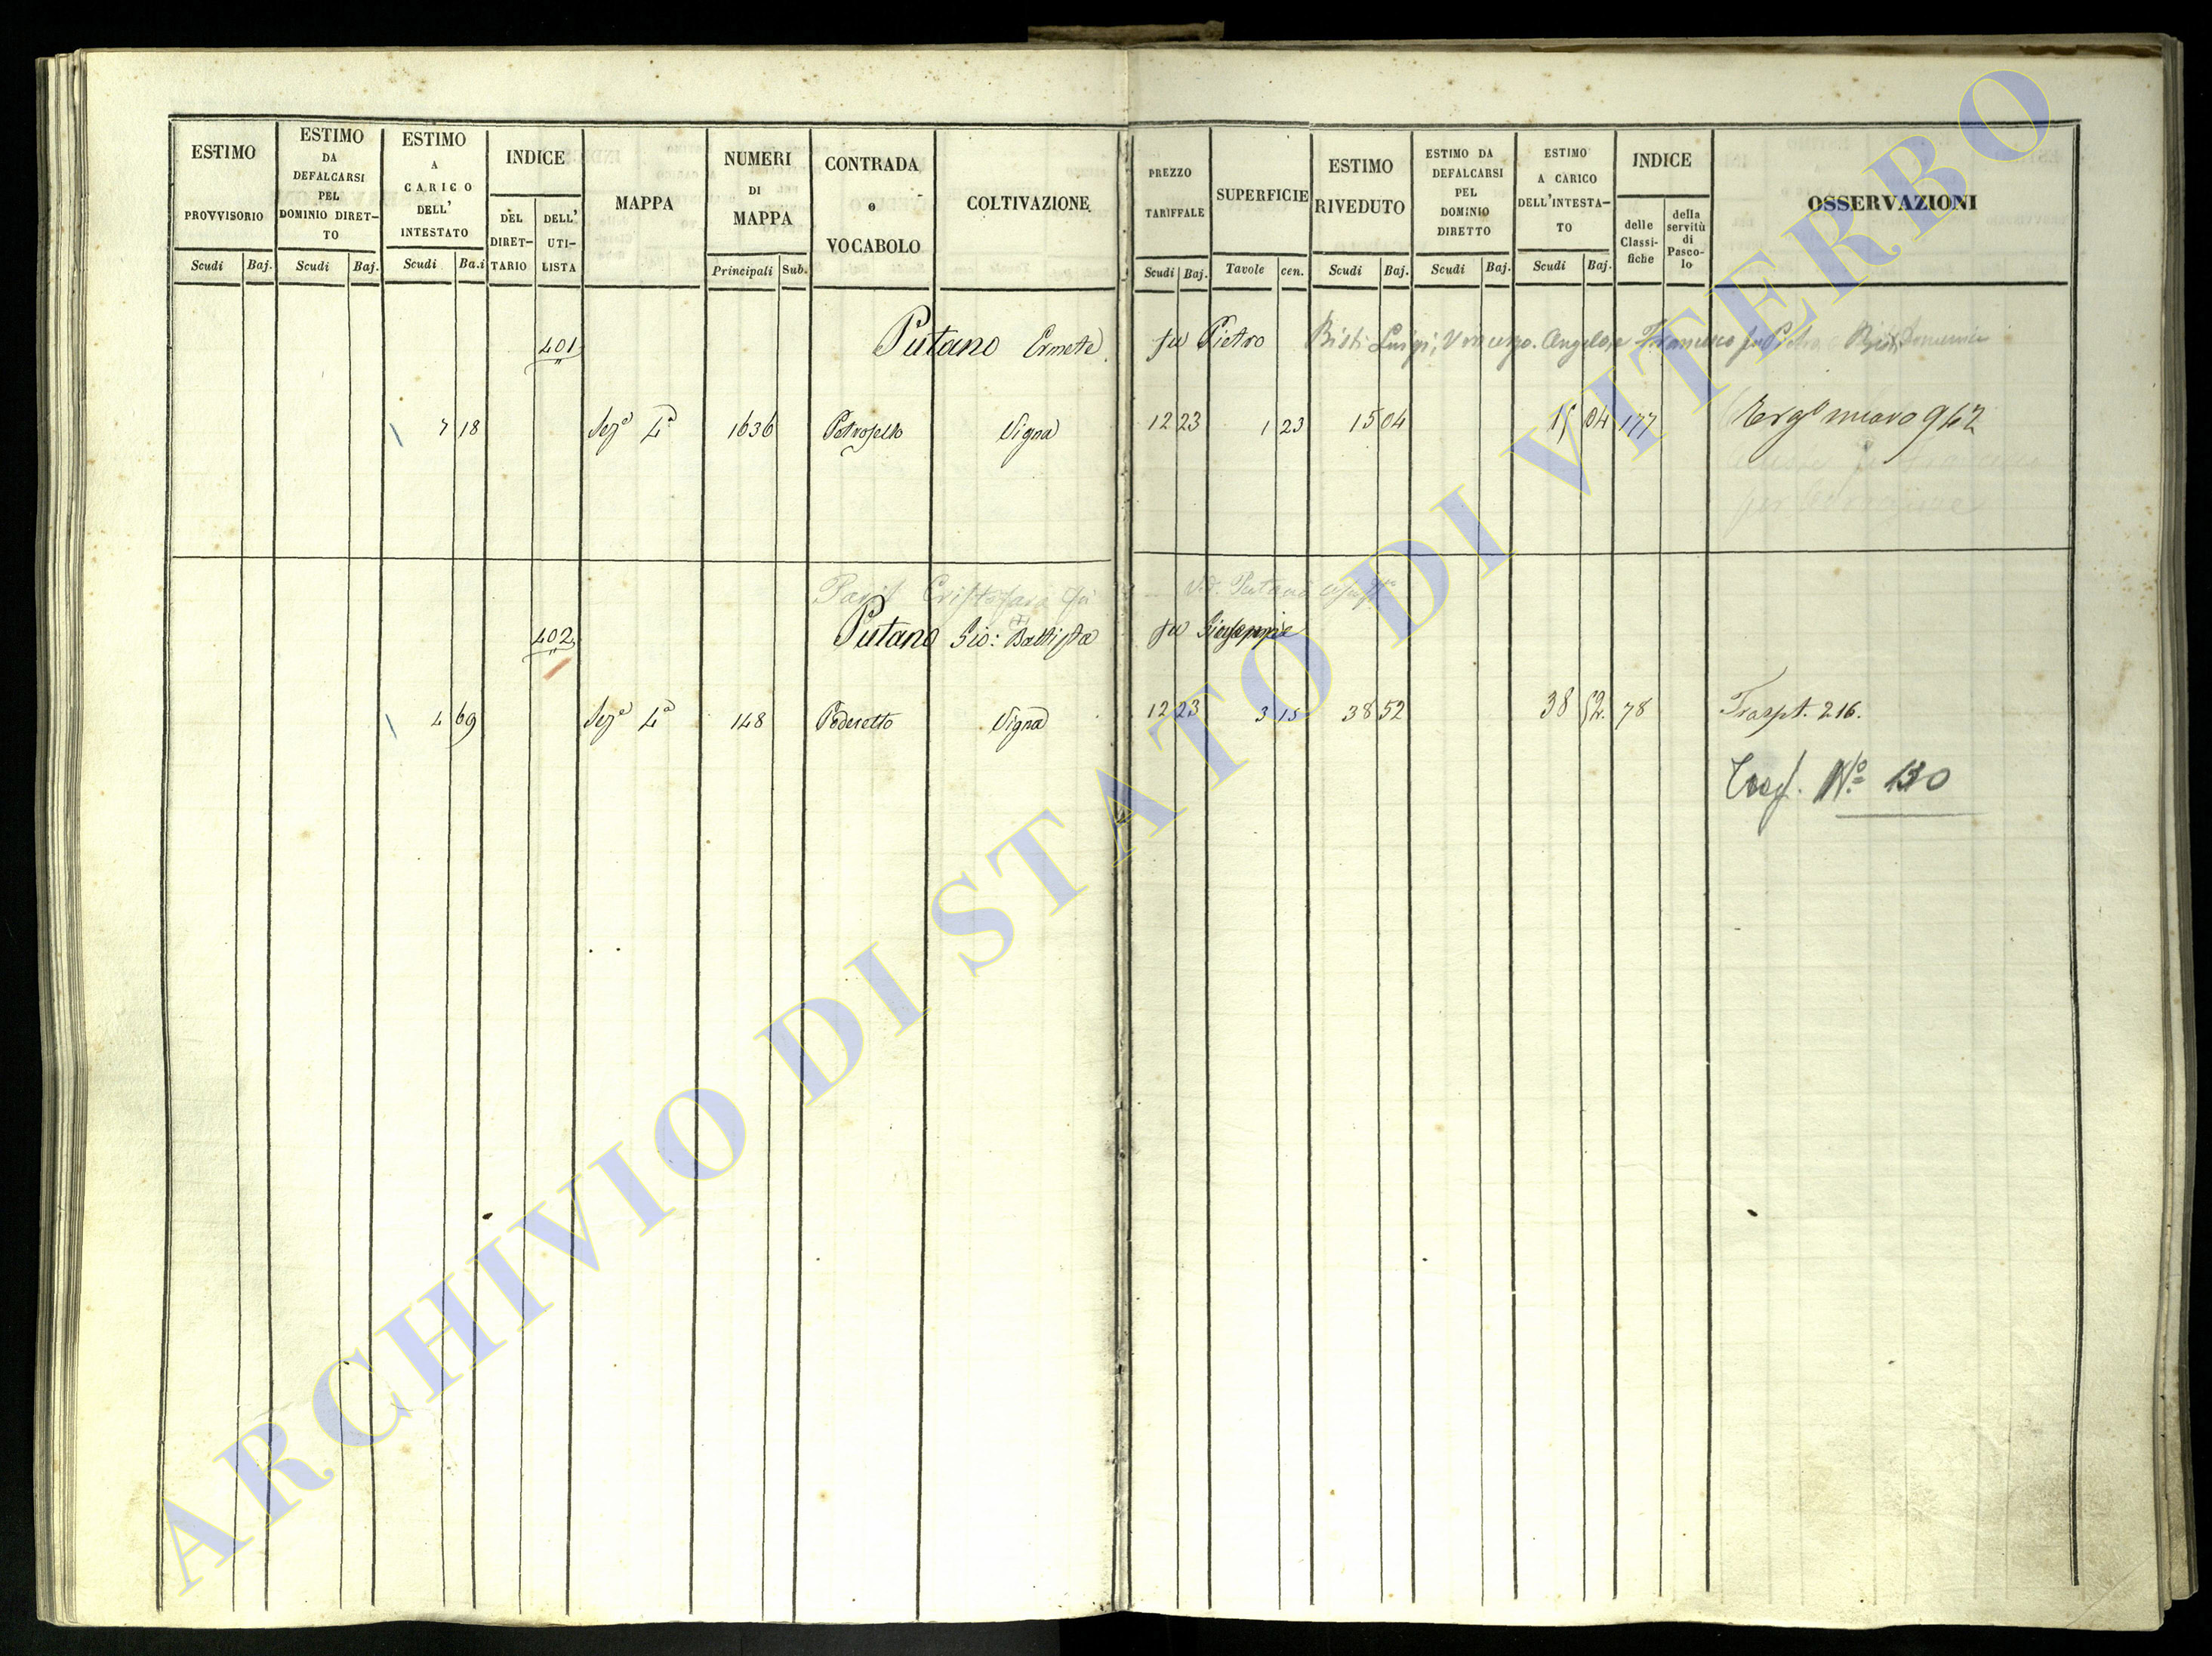 ESTIMO PROVVISORIO
Scudi Baj.
ESTIMO DA DEFALCARSI PEL DOMINIO DIRET–TO
Scudi Baj.
ESTIMO A CARICO DELL' INTESTATO
Scudi Ba.i
INDICE
DEL DIRET–TARIO
DELL' UTI–LISTA
MAPPA
NUMERI DI MAPPA
Principali Sub.
CONTRADA e VOCABOLO
COLTIVAZIONE
PREZZO TARIFFALE
Scudi Baj.
SUPERFICIE
Tavole cen.
ESTIMO RIVEDUTO
Scudi Baj.
ESTIMO DA DEFALCARSI PEL DOMINIO DIRETTO
Scudi Baj.
ESTIMO A CARICO DELL'INTESTA–TO
Scudi Baj.
INDICE
delle Classi–fiche
della servitù di Pasco–lo
OSSERVAZIONI
401 Putano Ermete fu Pietro Bisti Luigi, Vincenzo, Angelo, e Francesco fu Pietro
7 18 Sez.e 4.a 1636 Petrosello Vigna 12 23 1 23 15 04 15 04 177 nuovo 962
Cristofara
402 Putano Gio: Battista fu Giuseppe
4 69 Sez.e 4.a 148 Poderetto Vigna 12 23 3 15 38 52 38 52. 78 Traspt. 216.
N.o 130
ARCHIVIO DI STATO DI VITERBO